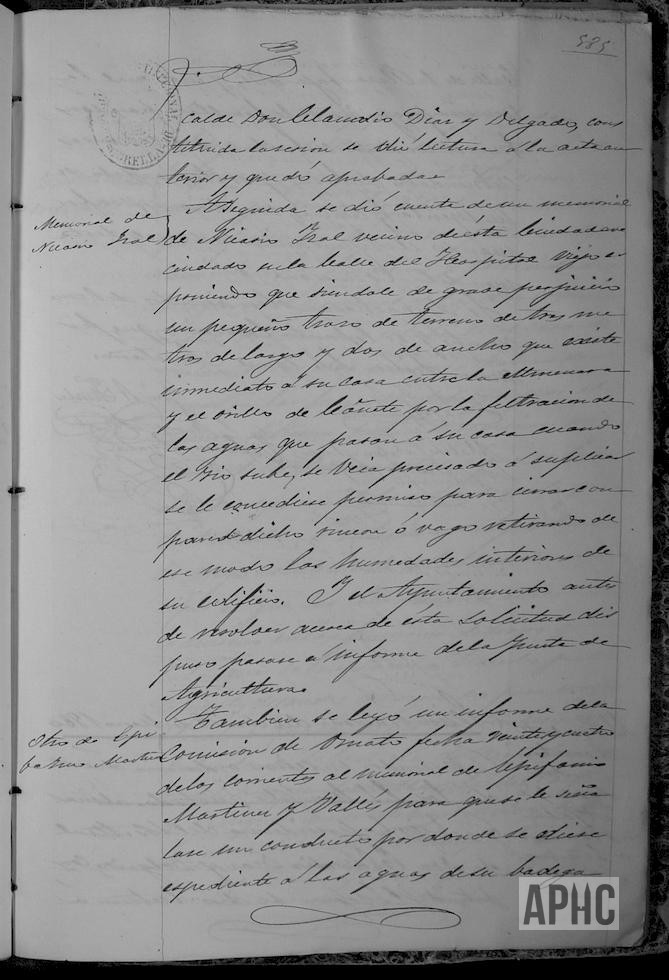 585
calde Don Claudio Diaz y Delgado, cons
tituida la sesion se dió lectura á la acta an
terior y quedó aprobada.
Memorial de
Nicasio Gral
A seguida se dió cuenta de un memorial
de Nicasio Gral vecino de ésta Ciudad ave
cindado en la Calle del Hospital Viejo es
poniendo que siendole de grave perjuicio
un pequeño trozo de terreno de tres me
tros de largo y dos de ancho que existe
inmediato á su casa entre la Almenara
y el orillo de Cañete por la filtracion de
las aguas que pasan á su casa cuando
el rio sube, se veia precisado á suplicar
se le concediese permiso para cerrar con
pared dicho rincon ó vago retirando de
ese modo las humedades interiores de
su edificio. Y el Ayuntamiento antes
de resolver acerca de ésta solicitud dis
puso pasase á informe de la Junta de
Agricultura.
Otro de Epi
fanio Martinez
Tambien se leyó un informe de la
Comision de Ornato fecha veinte y cuatro
de los corrientes al memorial de Epifanio
Martinez y Vallés para que se le seña
lase un conducto por donde se diese
espediente á las aguas de su bodega
APHC